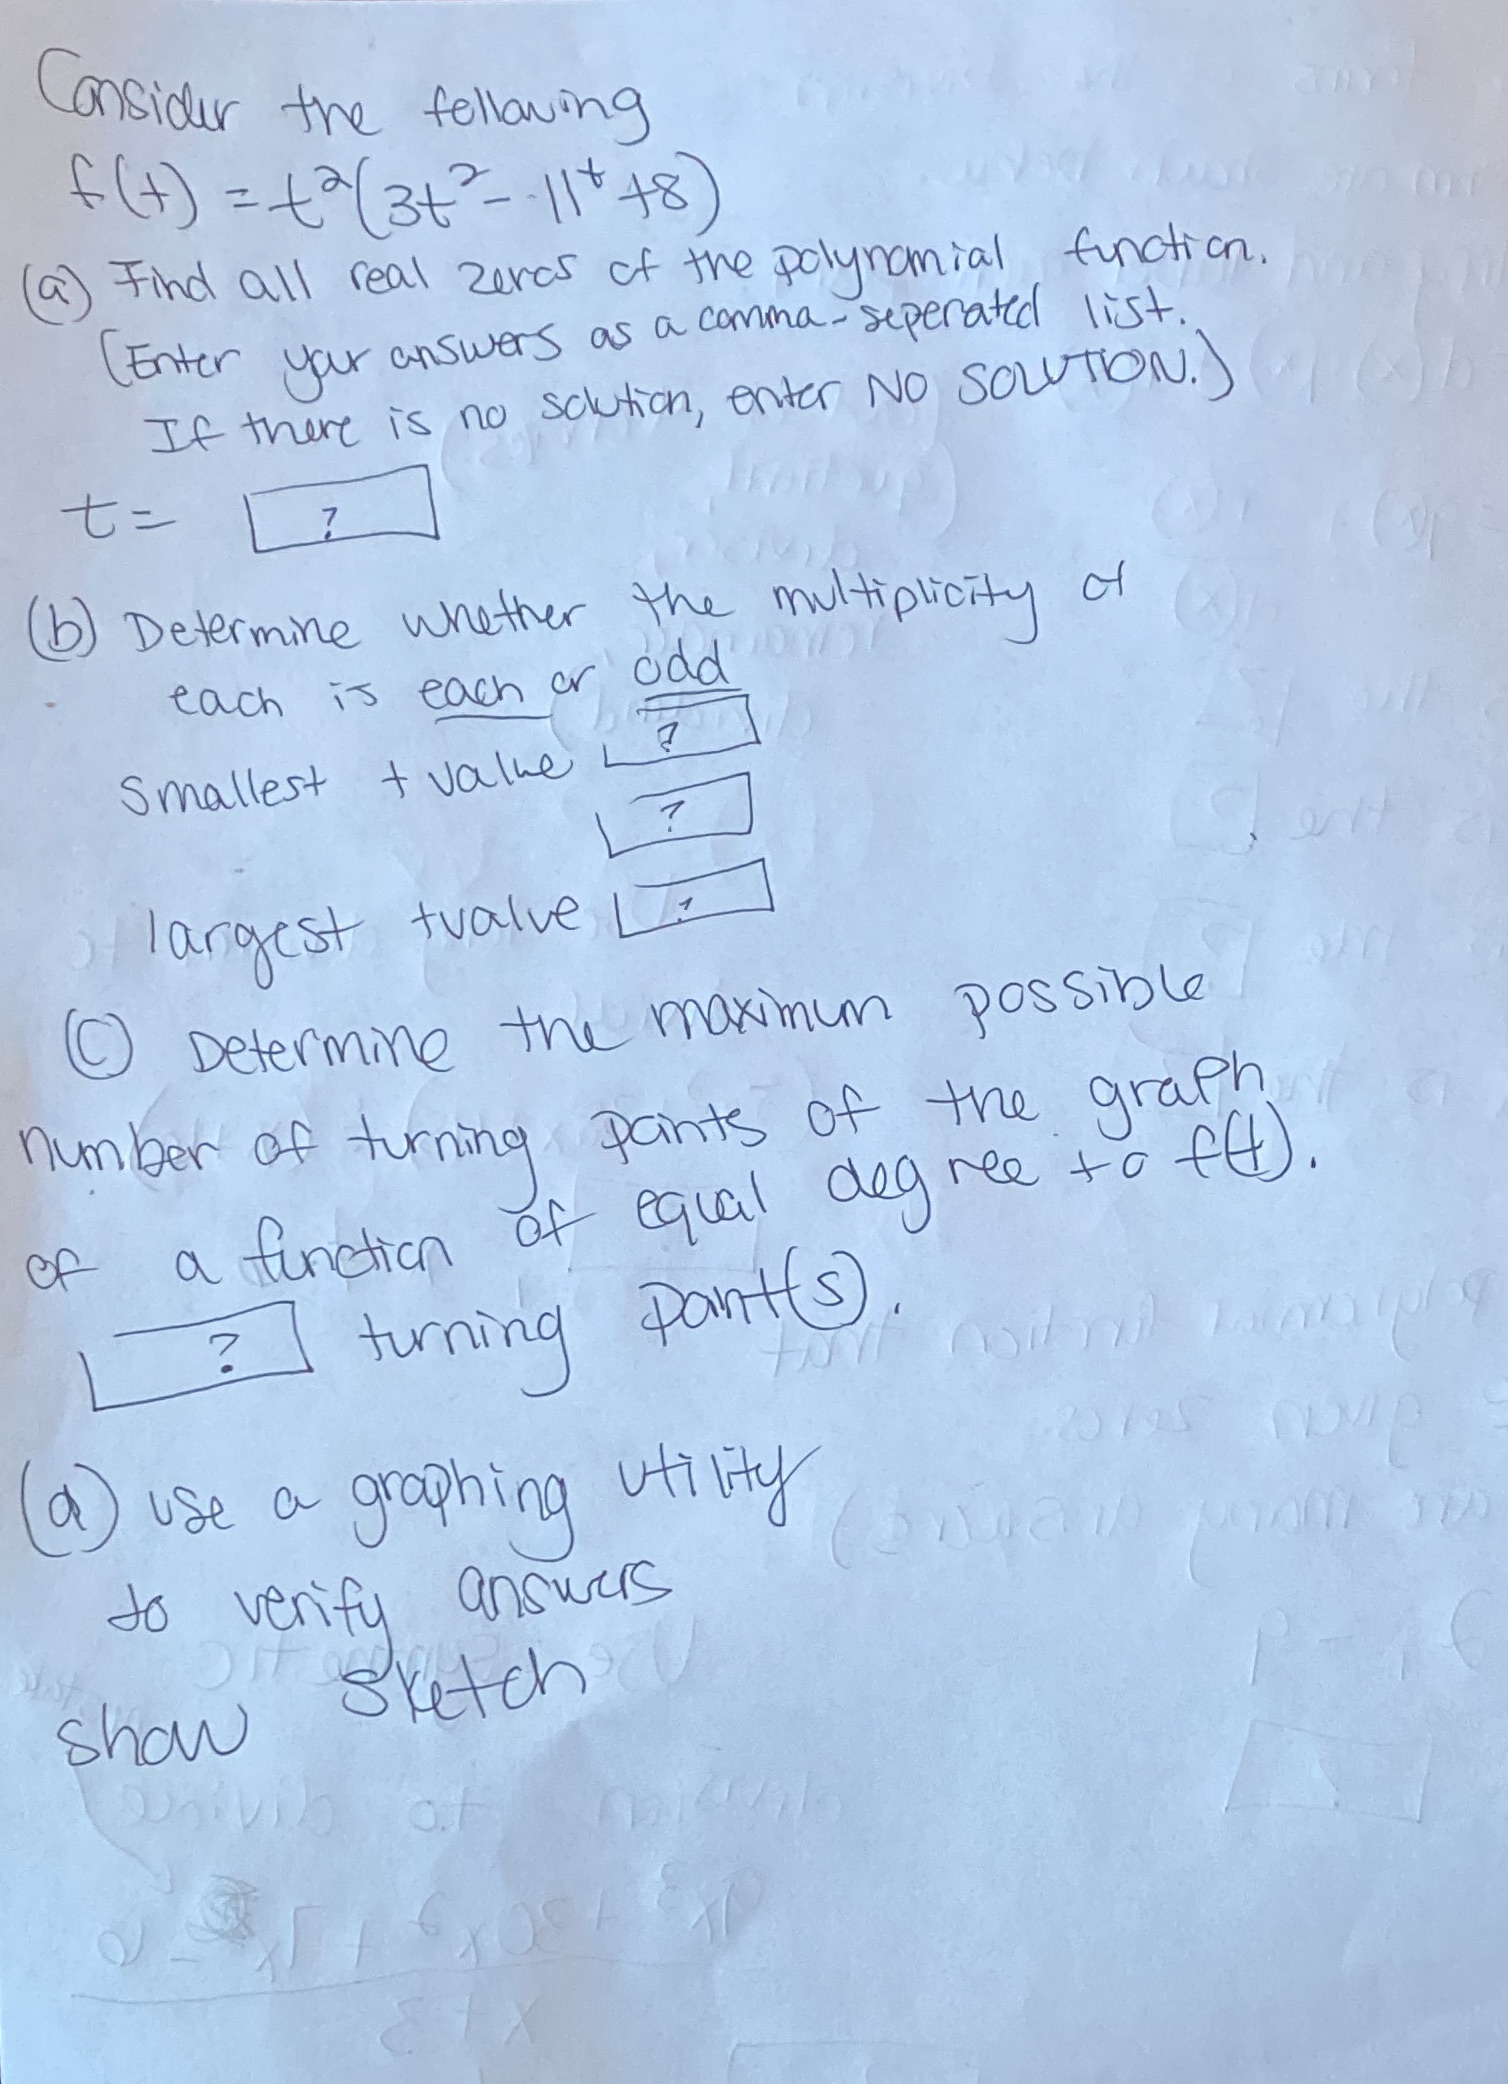 Consider the following
f(t) = t²(3t² - 11t + 8)
(a) Find all real zeros of the polynomial function.
(Enter your answers as a comma-seperated list.
If there is no solution, enter NO SOLUTION.)
t = ?
(b) Determine whether the multiplicity of
each is each or odd
smallest t value ?
?
largest t value ?
(c) Determine the maximum possible
number of turning points of the graph
of a function of equal degree to f(t).
? turning point(s).
(d) use a graphing utility
to verify answers
show sketch